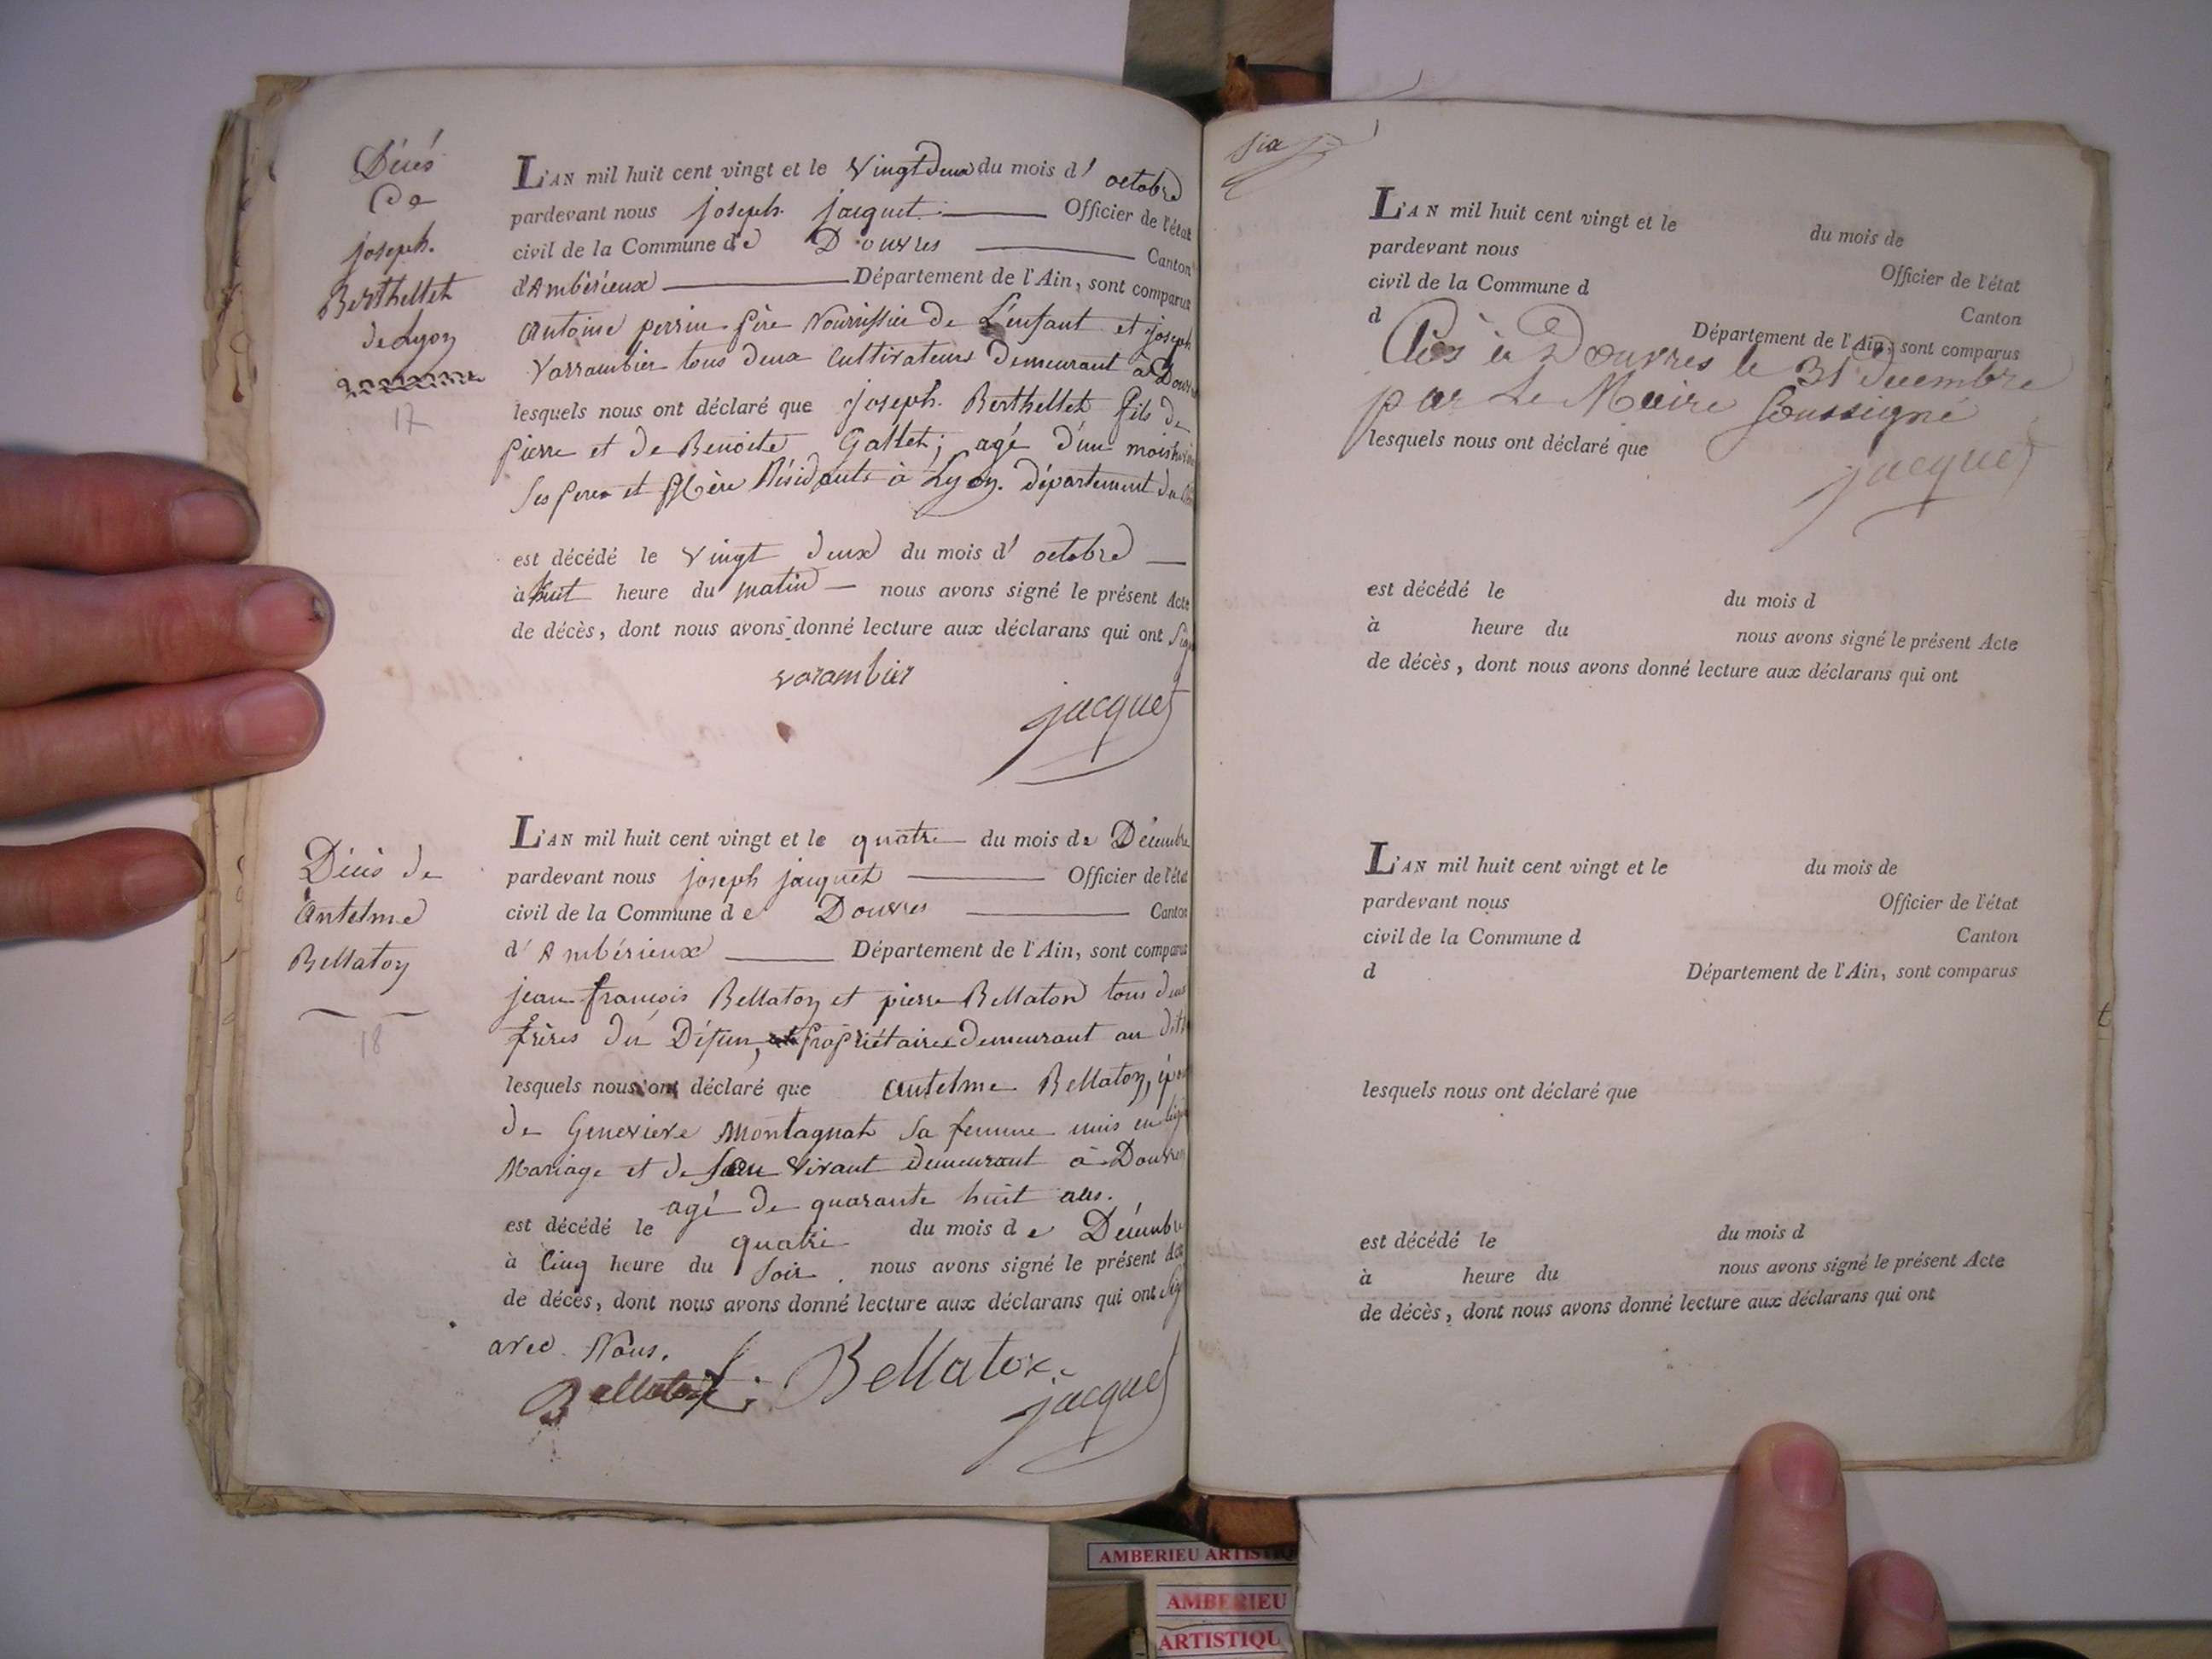 Décés
De
joseph.
Berthellet
de Lyon
17
L'AN mil huit cent vingt et le Vingt deux du mois d' octobre
pardevant nous joseph jacquet Officier de l'état
civil de la Commune de Douvres Canton
d'Ambérieux Département de l'Ain, sont comparus
Antoine perrin père Nourrissier de L'enfant et joseph
Varrambier tous deux Cultivateurs Demeurant à
lesquels nous ont déclaré que joseph. Berthellet fils de
pierre et de Benoite Gallet; agé d'un mois
Ses peres et Mère Résidants à Lyon. département du
est décédé le vingt deux du mois d' octobre
à huit heure du matin nous avons signé le présent Acte
de décès, dont nous avons donné lecture aux déclarans qui ont
varambier
jacquet
Décés de
Antelme
Bellaton
18
L'AN mil huit cent vingt et le quatre du mois de Décembre
pardevant nous joseph jacquet Officier de l'état
civil de la Commune de Douvres Canton
d'Ambérieux Département de l'Ain, sont comparus
jean françois Bellaton et pierre Bellaton tous deux
frères du Défun, propriétaires Demeurant au dit
lesquels nous ont déclaré que Antelme Bellaton,
de Genevieve Montagnat sa femme unis en
Mariage et de Son vivant demeurant à Douvres
agé de quarante huit ans.
est décédé le quatre du mois de Décembre
à Cinq heure du Soir. nous avons signé le présent Acte
de décès, dont nous avons donné lecture aux déclarans qui ont
avec Nous.
Bellaton Bellaton
jacquet
Six
L'AN mil huit cent vingt et le du mois de
pardevant nous Officier de l'état
civil de la Commune d Canton
d Département de l'Ain, sont comparus
Clos à Douvres le 31 Decembre
par Le Maire Soussigné
lesquels nous ont déclaré que
jacquet
est décédé le du mois d
à heure du nous avons signé le présent Acte
de décès, dont nous avons donné lecture aux déclarans qui ont
L'AN mil huit cent vingt et le du mois de
pardevant nous Officier de l'état
civil de la Commune d Canton
d Département de l'Ain, sont comparus
lesquels nous ont déclaré que
est décédé le du mois d
à heure du nous avons signé le présent Acte
de décès, dont nous avons donné lecture aux déclarans qui ont
AMBERIEU ARTISTIQ
AMBERIEU
ARTISTIQU